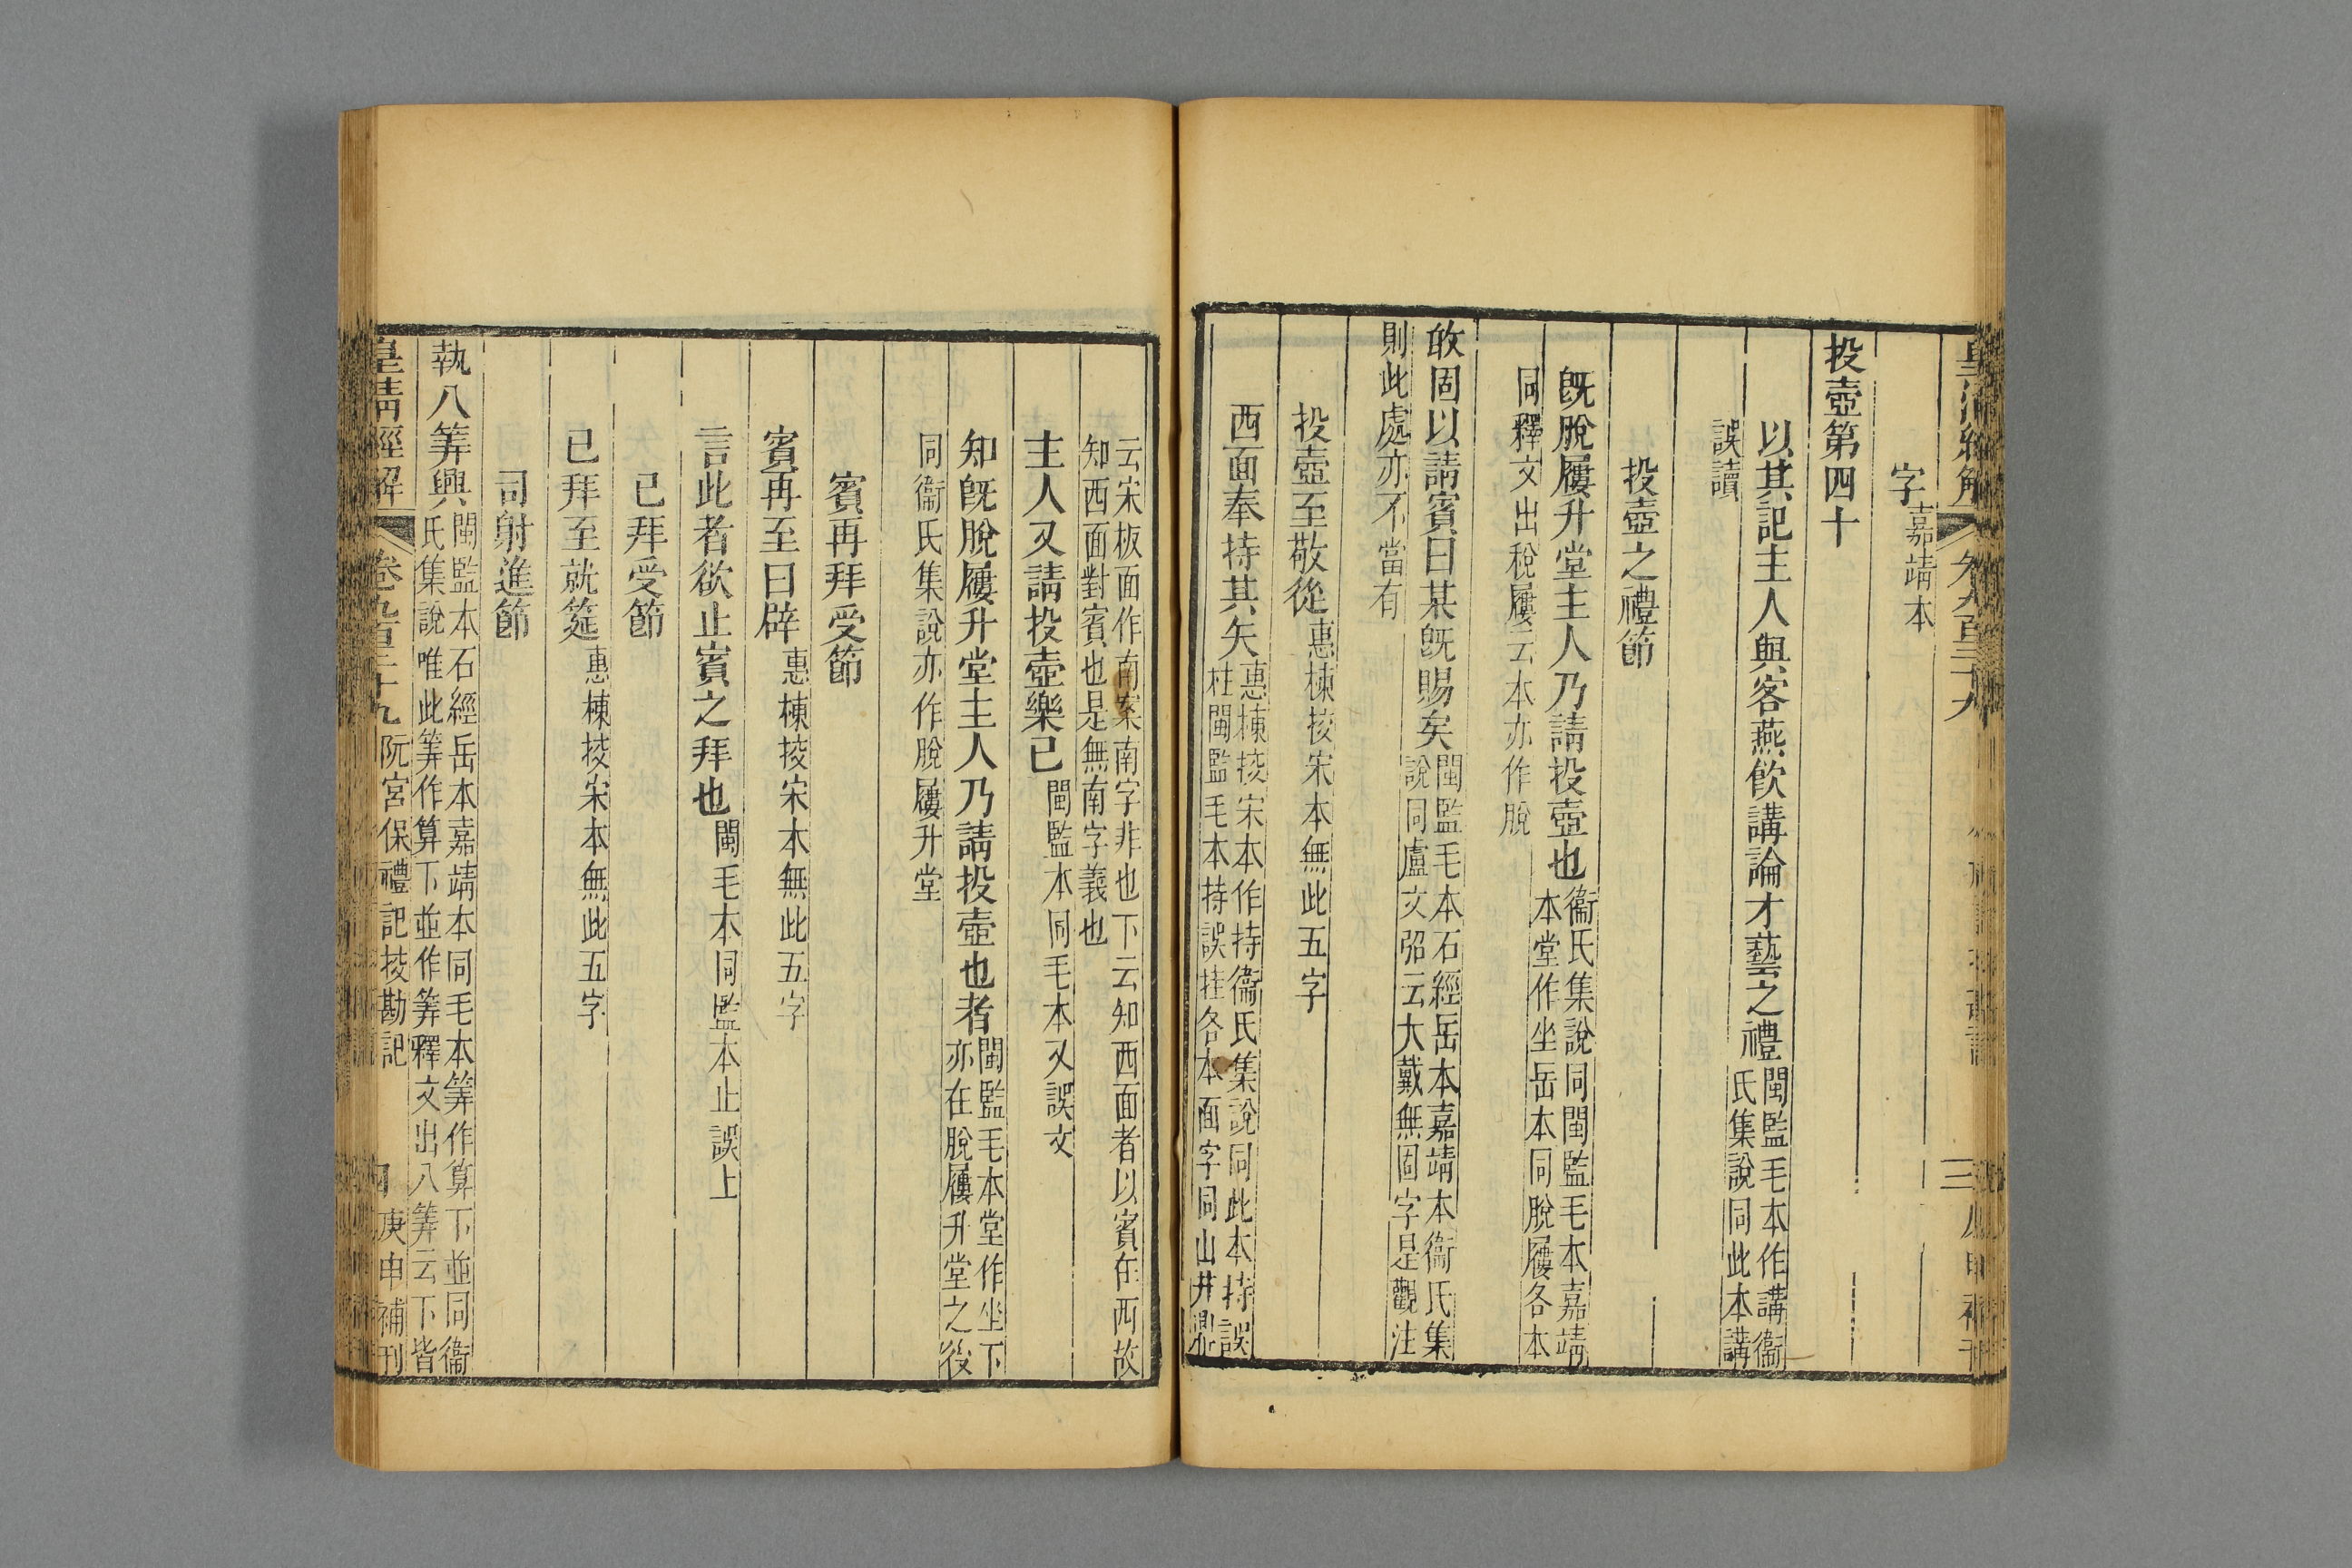 字嘉靖本
投壺第四十
以其記主人與客燕飲講論才藝之禮閩監毛本作講衞氏集說同此本講
誤讀
投壺之禮節
旣脫屨升堂主人乃請投壺也衞氏集說同閩監毛本嘉靖本堂作坐岳本同脫屨各本
同釋文出稅屨云本亦作脫
敢固以請賓曰某旣賜矣閩監毛本石經岳本嘉靖本衞氏集說同盧文弨云大戴無固字是觀注
則此處亦不當有
投壺至敬從惠棟挍宋本無此五字
西面奉持其矢惠棟挍宋本作持衞氏集說同此本持誤柱閩監毛本持誤拄各本面字同山井鼎
云宋板面作南案南字非也下云知西面者以賓在西故知西面對賓也是無南字義也
主人又請投壺樂已閩監本同毛本又誤文
知旣脫屨升堂主人乃請投壺也者閩監毛本堂作坐下亦在脫屨升堂之後
同衞氏集說亦作脫屨升堂
賓再拜受節
賓再至曰辟惠棟挍宋本無此五字
言此者欲止賓之拜也閩毛本同監本止誤上
已拜受節
已拜至就筵惠棟挍宋本無此五字
司射進節
執八筭興閩監本石經岳本嘉靖本同毛本筭作算下並同衞氏集說唯此筭作算下並作筭釋文出八筭云下皆
皇清經解 卷九百三十九 阮宮保禮記挍勘記 庚申補刊